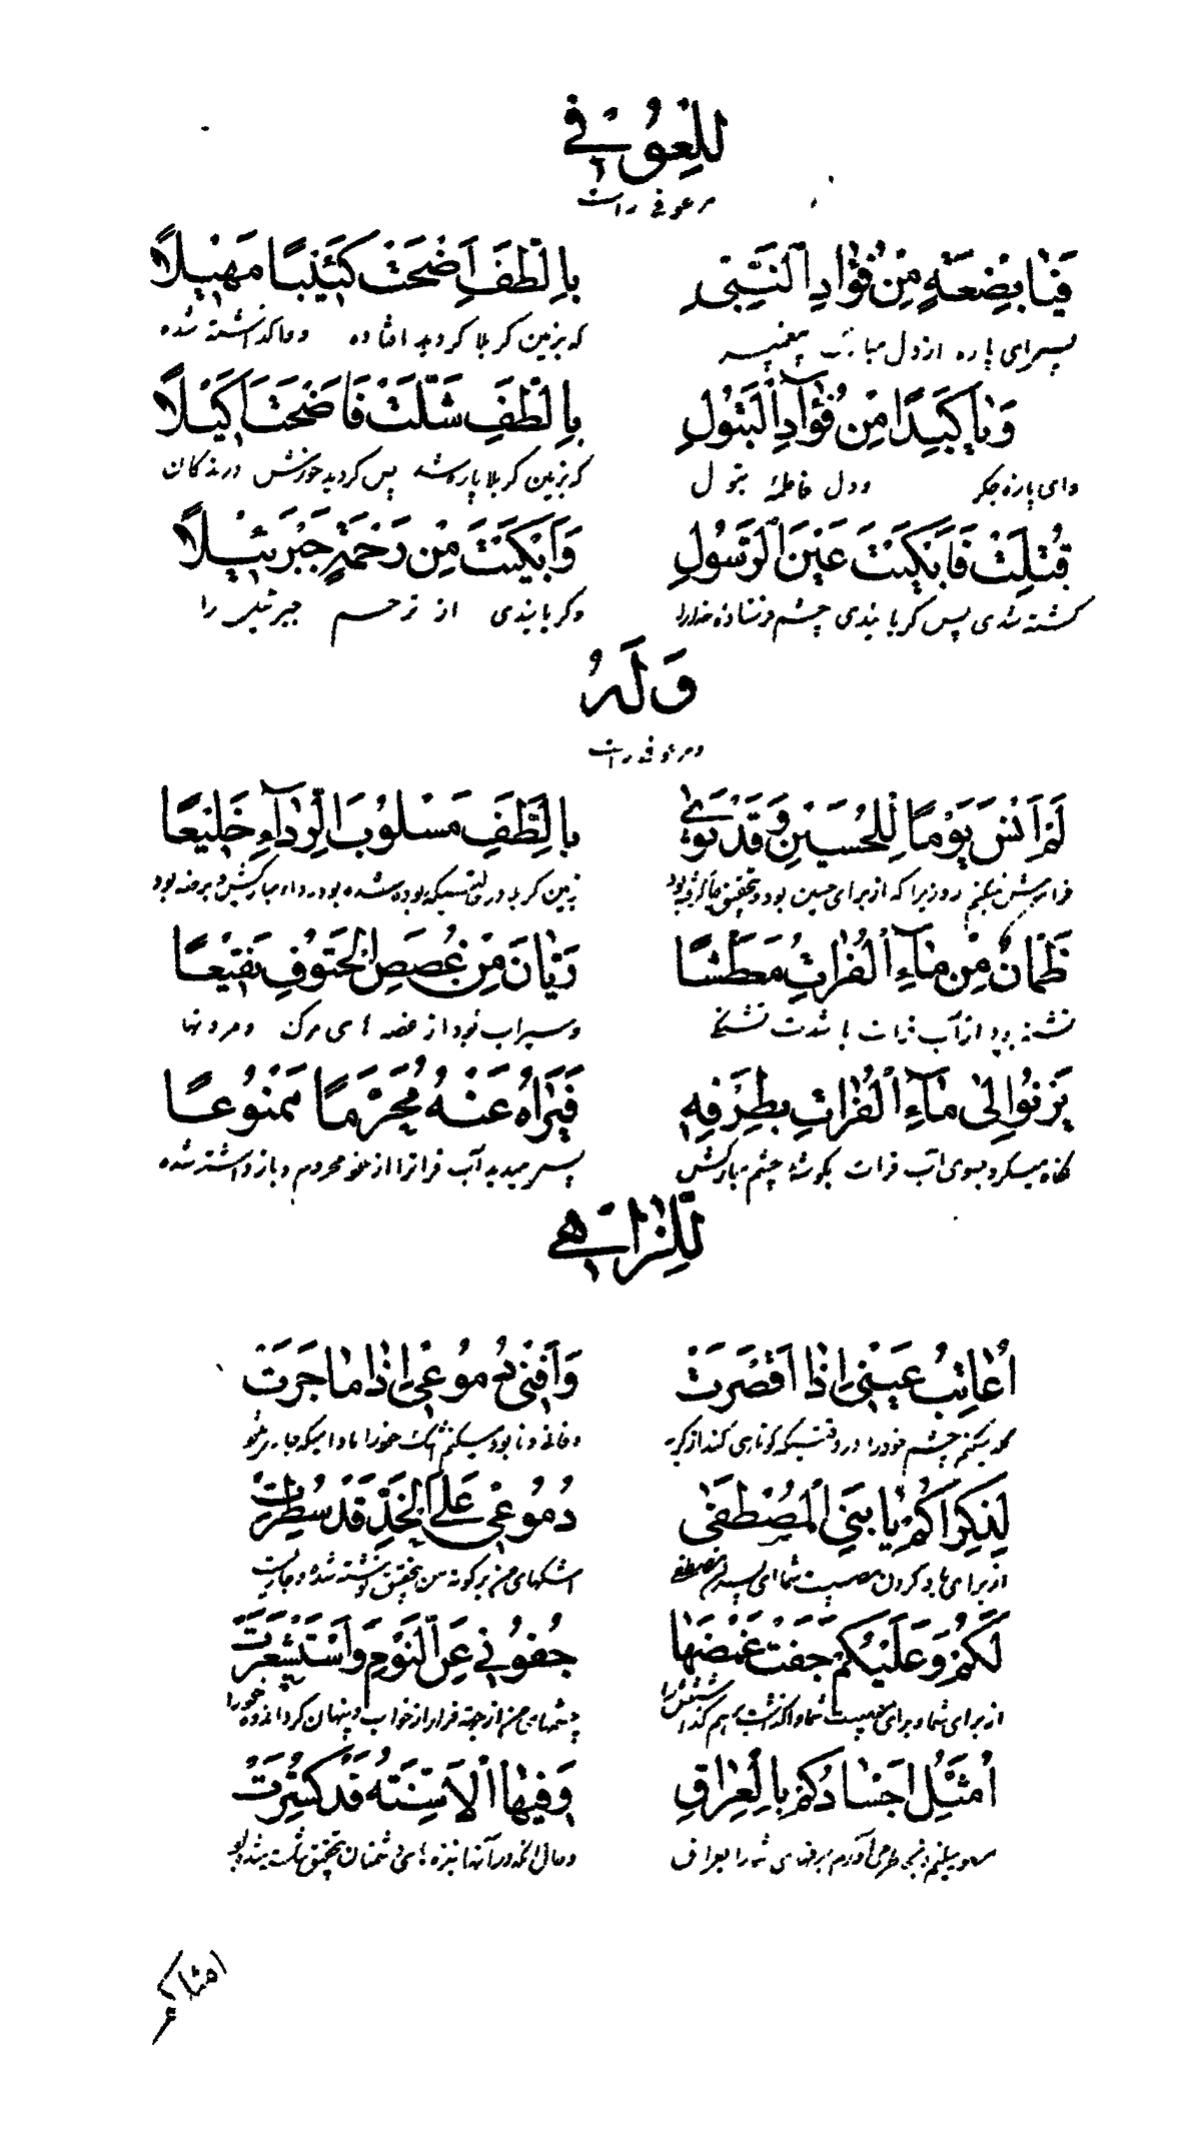 للعوفي
مر عوفی راست
فَيٰا بِضْعَةٍ مِنْ فُؤٰادِ النَّبِيِّ بِالطَّفِّ اَضْحَتْ كَثيٖبًا مَهيٖلاً
پس ای پاره از دل مبارک پیغمبر که بزمین کربلا گردید افتاده و واگذاشته شده
وَيٰا كَبِدًا مِنْ فُؤٰآدِ الْبَتُولِ بِالطَّفِّ شُلَّتْ فَاَضْحَتْ اَكيٖلاً
وای پاره جگر و دل فاطمهٔ بتول که بزمین کربلا پاره شد پس گردید خورش درندگان
قُتِلْتَ فَاَبْكَيْتَ عَيْنَ الرَّسُولِ وَاَبْكَيْتَ مِنْ رَحْمَةٍ جَبْرَئيٖلاً
کشته شدی پس گریانیدی چشم فرستاده خدا را و گریانیدی از ترحم جبرئیل را
وَلَهُ
و مر عوفی راست
لَمْ اَنْسَ يَوْمًا لِلْحُسَيْنِ وَقَدْ ثَوىٰ بِالطَّفِّ مَسْلُوبَ الرِّدٰآءِ خَليٖعًا
فراموش نمیکنم روزیرا که از برای حسین بود و بتحقیق جا گرفته بود بزمین کربلا در حالتیکه ربوده شده بود رداء مبارکش و برهنه بود
ظَمْاٰنُ مِنْ مٰآءِ الْفُرٰاتِ مُعَطَّشًا رَيّٰانَ مِنْ غُصَصِ الْحُتُوفِ نَقيٖعًا
تشنه بود از آب فرات با شدت تشنگی و سیراب بود از غصه های مرگ و مردنها
يَرْنُو اِلىٰ مٰآءِ الْفُرٰاتِ بِطَرْفِهِ فَيَرٰاهُ عَنْهُ مُحَرَّمًا مَمْنُوعًا
نگاه میکرد بسوی آب فرات بگوشهٔ چشم مبارکش پس میدید آب فراترا از خود محروم و بازداشته شده
لِلزّٰاهي
اُعٰاتِبُ عَيْنيٖ اِذٰا اَقْصَرَتْ وَاُفْنيٖ دُمُوعيٖ اِذٰا مٰا جَرَتْ
گله میکنم چشم خود را در وقتیکه کوتاهی کند از گریه و فانی و نابود میکنم اشک خود را مادامیکه جاری شود
لِذِكْرٰاكُمْ يٰا بَنِي الْمُصْطَفىٰ دُمُوعيٖ عَلَى الْخَدِّ قَدْ سُطِرَتْ
از برای یاد کردن مصیبت شما ای پسران مصطفی اشکهای من بر گونه من بتحقیق نوشته شده و جاریست
لَكُمْ وَعَلَيْكُمْ جَفَتْ غَمْضَهٰا جُفُونيٖ عَنِ النَّوْمِ وَاسْتَشْعَرَتْ
از برای شما و برای مصیبت شما واگذاشت بر هم گذاشتنش را چشمهای من از جهة فرار از خواب و پنهان کردانده خود را
اُمَثِّلُ اَجْسٰادَكُمْ بِالْعِرٰاقِ وَفيٖهَا الْاَسِنَّةُ قَدْ كُسِّرَتْ
بعراق و حال آنکه در آنها نیزه های دشمنان بتحقیق شکسته شده بود
امثا